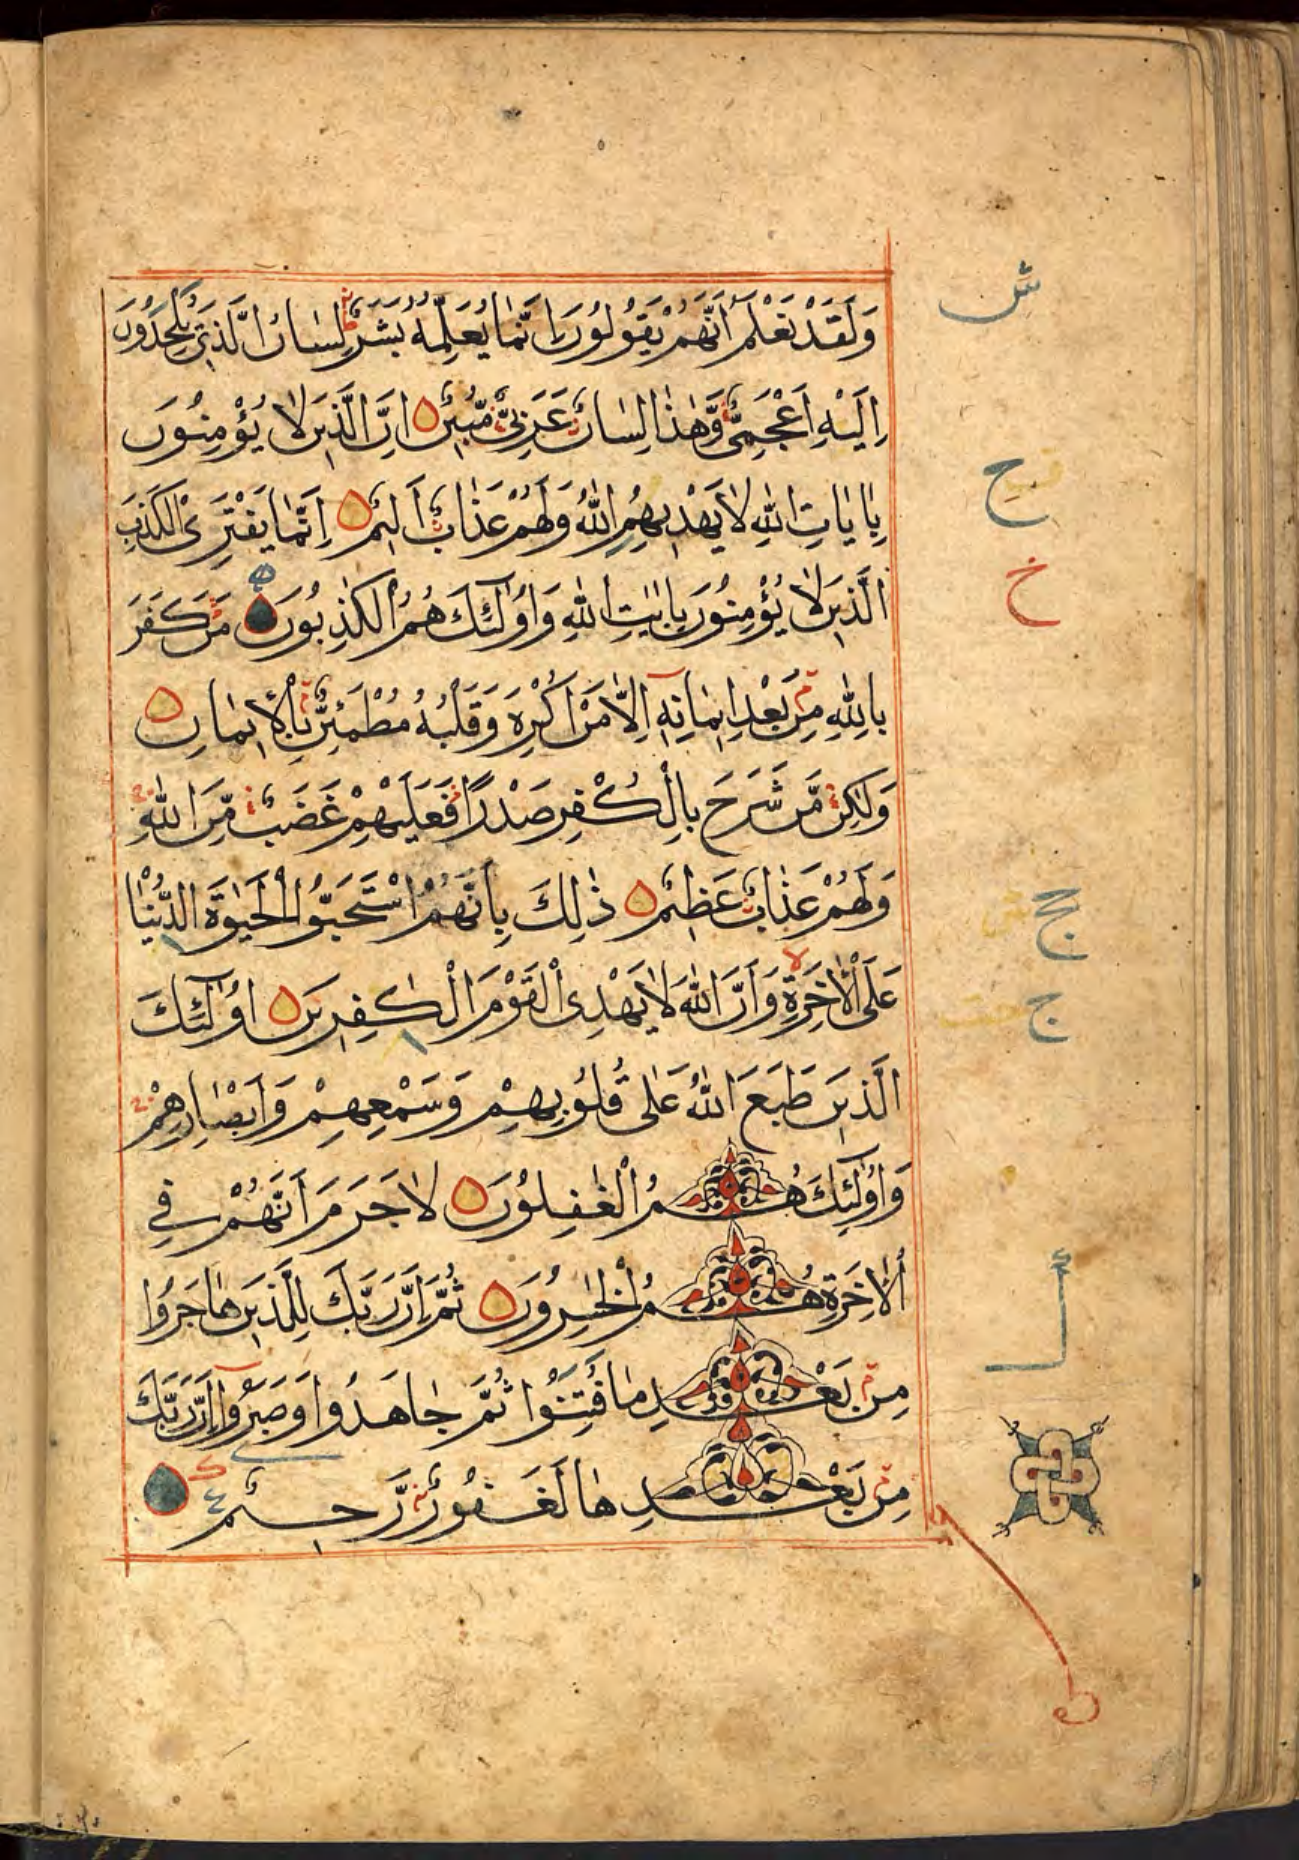 وَلَقَدْ نَعْلَمُ أَنَّهُمْ يَقُولُونَ إِنَّمَا يُعَلِّمُهُ بَشَرٌ لِسَانُ الَّذِي يُلْحِدُونَ
إِلَيْهِ أَعْجَمِيٌّ وَّهٰذَا لِسَانٌ عَرَبِيٌّ مُّبِينٌ اِنَّ الَّذِينَ لَا يُؤْمِنُونَ
بِاٰيَاتِ اللّٰهِ لَا يَهْدِيهِمُ اللّٰهُ وَلَهُمْ عَذَابٌ اَلِيمٌ اِنَّمَا يَفْتَرِى الْكَذِبَ
الَّذِينَ لَا يُؤْمِنُونَ بِاٰيٰتِ اللّٰهِ وَاُولٰٓئِكَ هُمُ الْكٰذِبُونَ مَنْ كَفَرَ
بِاللّٰهِ مِنْ بَعْدِ اِيمَانِهِ اِلَّا مَنْ اُكْرِهَ وَقَلْبُهُ مُطْمَئِنٌّ بِالْاِيمَانِ
وَلٰكِنْ مَّنْ شَرَحَ بِالْكُفْرِ صَدْرًا فَعَلَيْهِمْ غَضَبٌ مِّنَ اللّٰهِ
وَلَهُمْ عَذَابٌ عَظِيمٌ ذٰلِكَ بِاَنَّهُمُ اسْتَحَبُّوا الْحَيٰوةَ الدُّنْيَا
عَلَى الْاٰخِرَةِ وَاَنَّ اللّٰهَ لَا يَهْدِى الْقَوْمَ الْكٰفِرِينَ اُولٰٓئِكَ
الَّذِينَ طَبَعَ اللّٰهُ عَلٰى قُلُوبِهِمْ وَسَمْعِهِمْ وَاَبْصَارِهِمْ
وَاُولٰٓئِكَ هُمُ الْغٰفِلُونَ لَا جَرَمَ اَنَّهُمْ فِي
الْاٰخِرَةِ هُمُ الْخٰسِرُونَ ثُمَّ اِنَّ رَبَّكَ لِلَّذِينَ هَاجَرُوا
مِنْ بَعْدِ مَا فُتِنُوا ثُمَّ جَاهَدُوا وَصَبَرُوا اِنَّ رَبَّكَ
مِنْ بَعْدِهَا لَغَفُورٌ رَّحِيمٌ